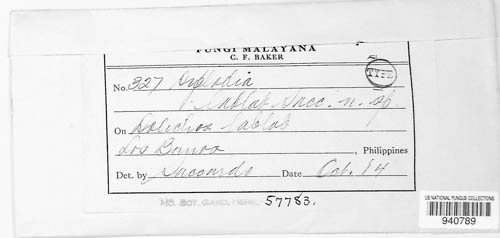 FUNGI MALAYANA
C. F. BAKER
TYPE
No. 327 Diplodia
lablab Sacc. n. sp.
On Dolichos lablab
Los Banos, Philippines
Det. by Saccardo Date Oct. 14
MO. BOT. GARD. HERB. 57783.
US NATIONAL FUNGUS COLLECTIONS
940789